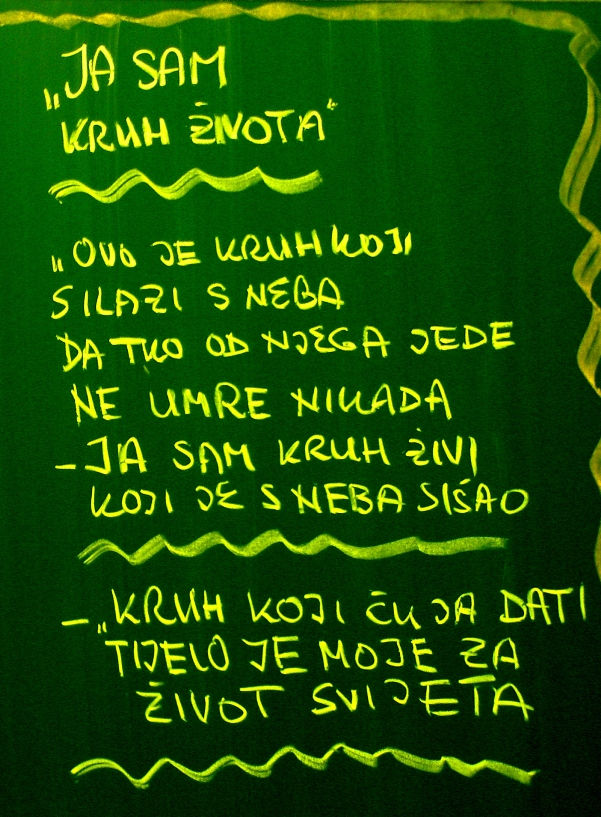 „JA SAM
KRUH ŽIVOTA"
„OVO JE KRUH KOJI
SILAZI S NEBA
DA TKO OD NJEGA JEDE
NE UMRE NIKADA
– JA SAM KRUH ŽIVI
KOJI JE S NEBA SIŠAO
– „KRUH KOJI ĆU JA DATI
TIJELO JE MOJE ZA
ŽIVOT SVIJETA